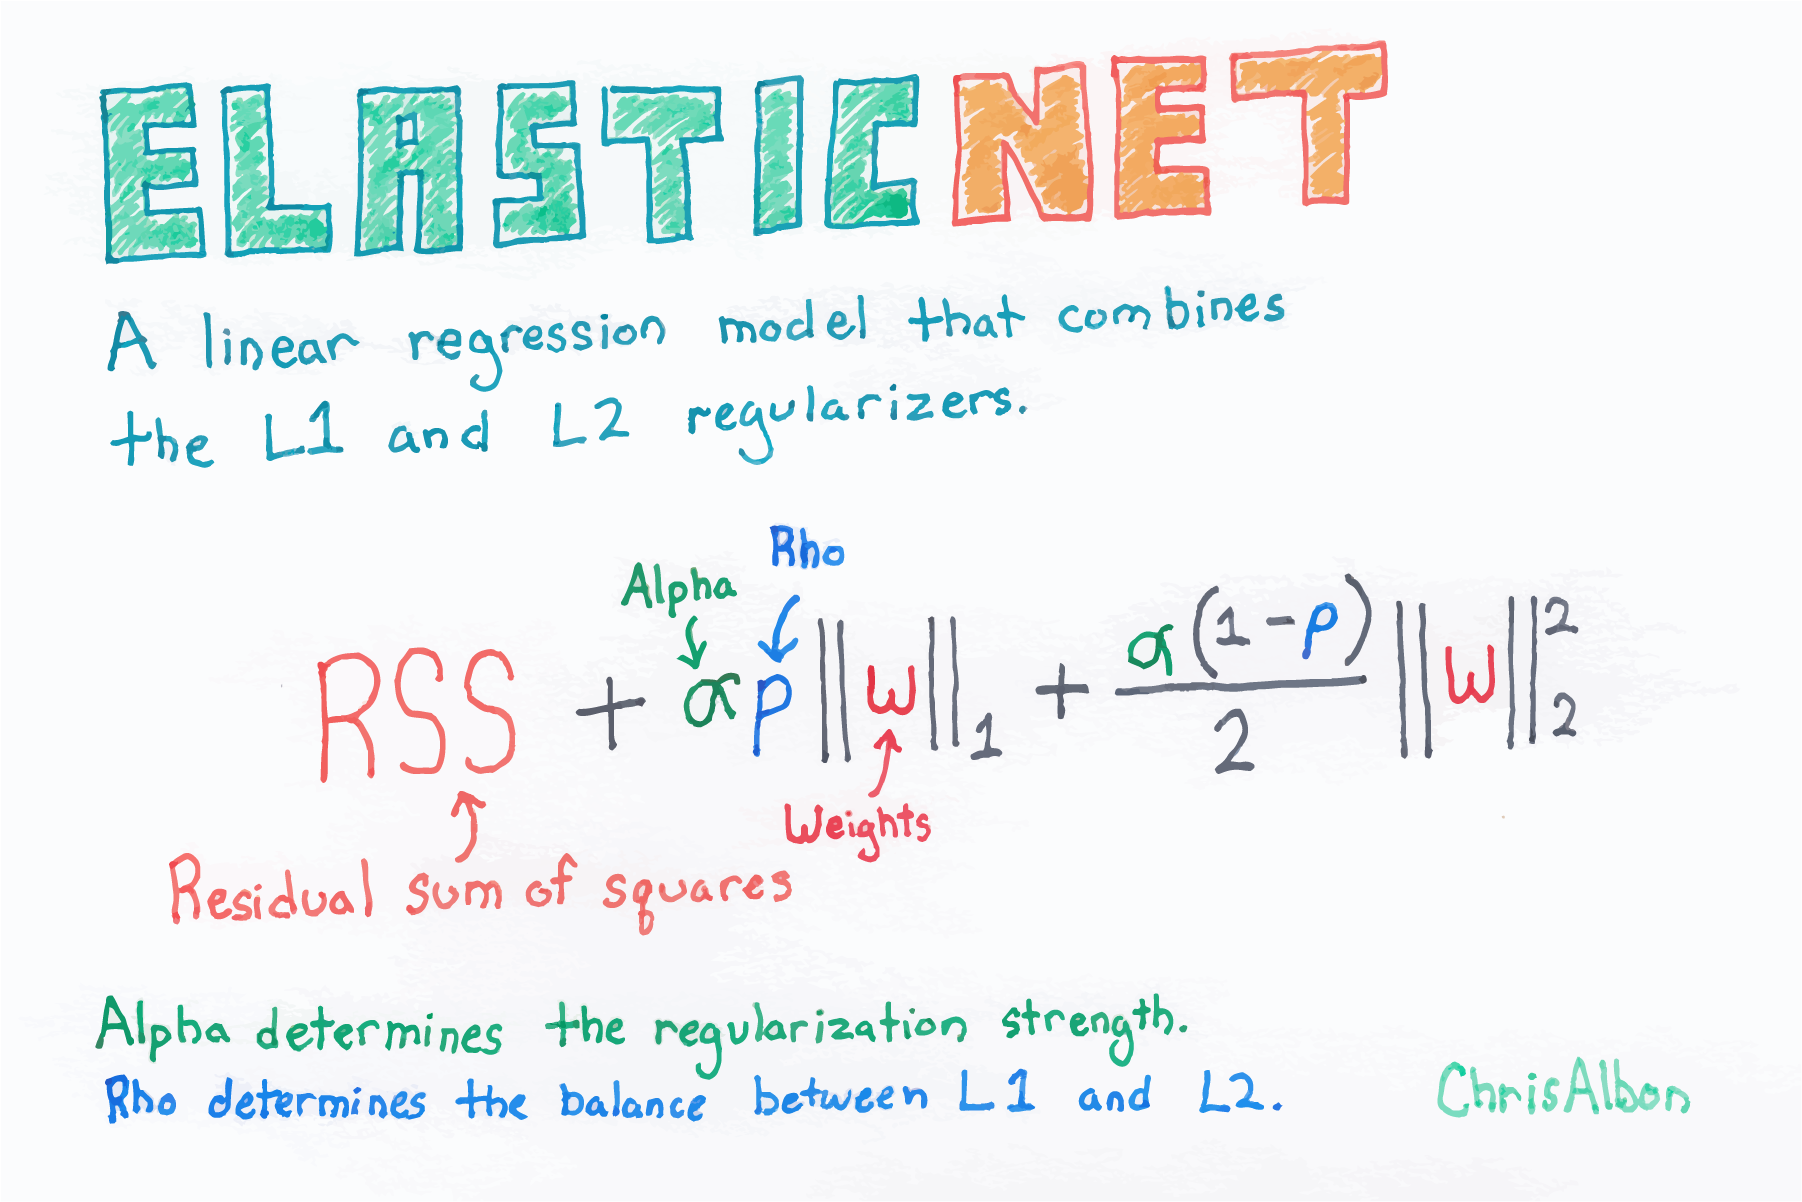 ELASTIC NET
A linear regression model that combines
the L1 and L2 regularizers.
Rho
Alpha
RSS + αρ||w||₁ + α(1-ρ)/2 ||w||₂²
Weights
Residual sum of squares
Alpha determines the regularization strength.
Rho determines the balance between L1 and L2.
ChrisAlbon